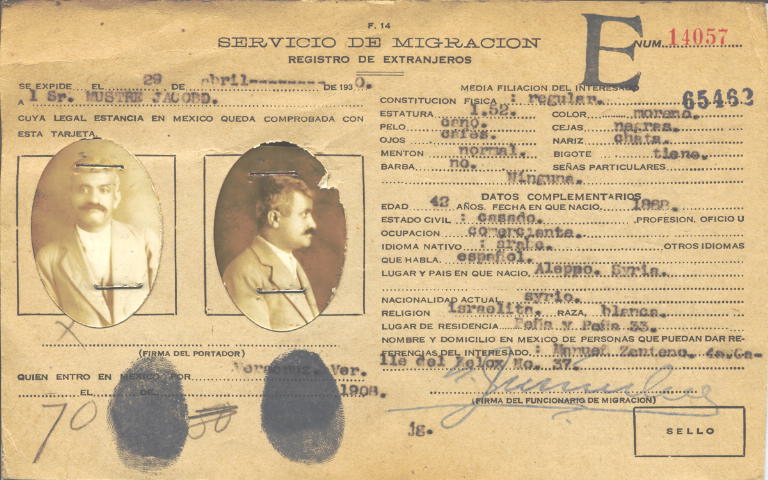 F. 14
SERVICIO DE MIGRACION
REGISTRO DE EXTRANJEROS
E NUM. 14057
SE EXPIDE EL 29 DE abril-------- DE 1930.
A l Sr. MUSTRE JACOBO.
CUYA LEGAL ESTANCIA EN MEXICO QUEDA COMPROBADA CON
ESTA TARJETA.
(FIRMA DEL PORTADOR)
QUIEN ENTRO EN MEXICO POR Veracruz. Ver.
EL DE 1908.
70
MEDIA FILIACION DEL INTERESADO
65462
CONSTITUCION FISICA : regular.
ESTATURA 1.52. COLOR moreno.
PELO cano. CEJAS negras.
OJOS cafes. NARIZ chata.
MENTON normal. BIGOTE tiene.
BARBA no. SEÑAS PARTICULARES
Ninguna.
DATOS COMPLEMENTARIOS
EDAD 42 AÑOS. FECHA EN QUE NACIO, 1888.
ESTADO CIVIL : casado. PROFESION, OFICIO U
OCUPACION comerciante.
IDIOMA NATIVO : arabe. OTROS IDIOMAS
QUE HABLA, español.
LUGAR Y PAIS EN QUE NACIO, Aleppo. Syria.
NACIONALIDAD ACTUAL, syrio.
RELIGION israelita. RAZA, blanca.
LUGAR DE RESIDENCIA Peña y Peña 33.
NOMBRE Y DOMICILIO EN MEXICO DE PERSONAS QUE PUEDAN DAR RE-
FERENCIAS DEL INTERESADO. : Manuel Zenteno. 4a. Ca-
lle del Relox No. 37.
(FIRMA DEL FUNCIONARIO DE MIGRACION)
jg.
SELLO